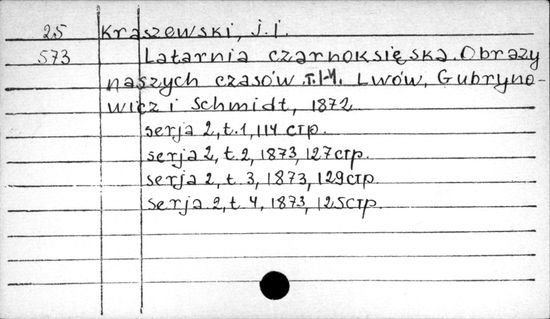 25 Kraszewski, J. I.
573 Latarnia czarnoksięska. Obrazy
naszych czasów T.I-4. Lwów, Gubryno-
wicz i Schmidt, 1872
serja 2, t. 1, 114 стр.
serja 2, t. 2, 1873, 127 стр.
serja 2, t. 3, 1873, 129 стр.
serja 2, t. 4, 1873, 125 стр.